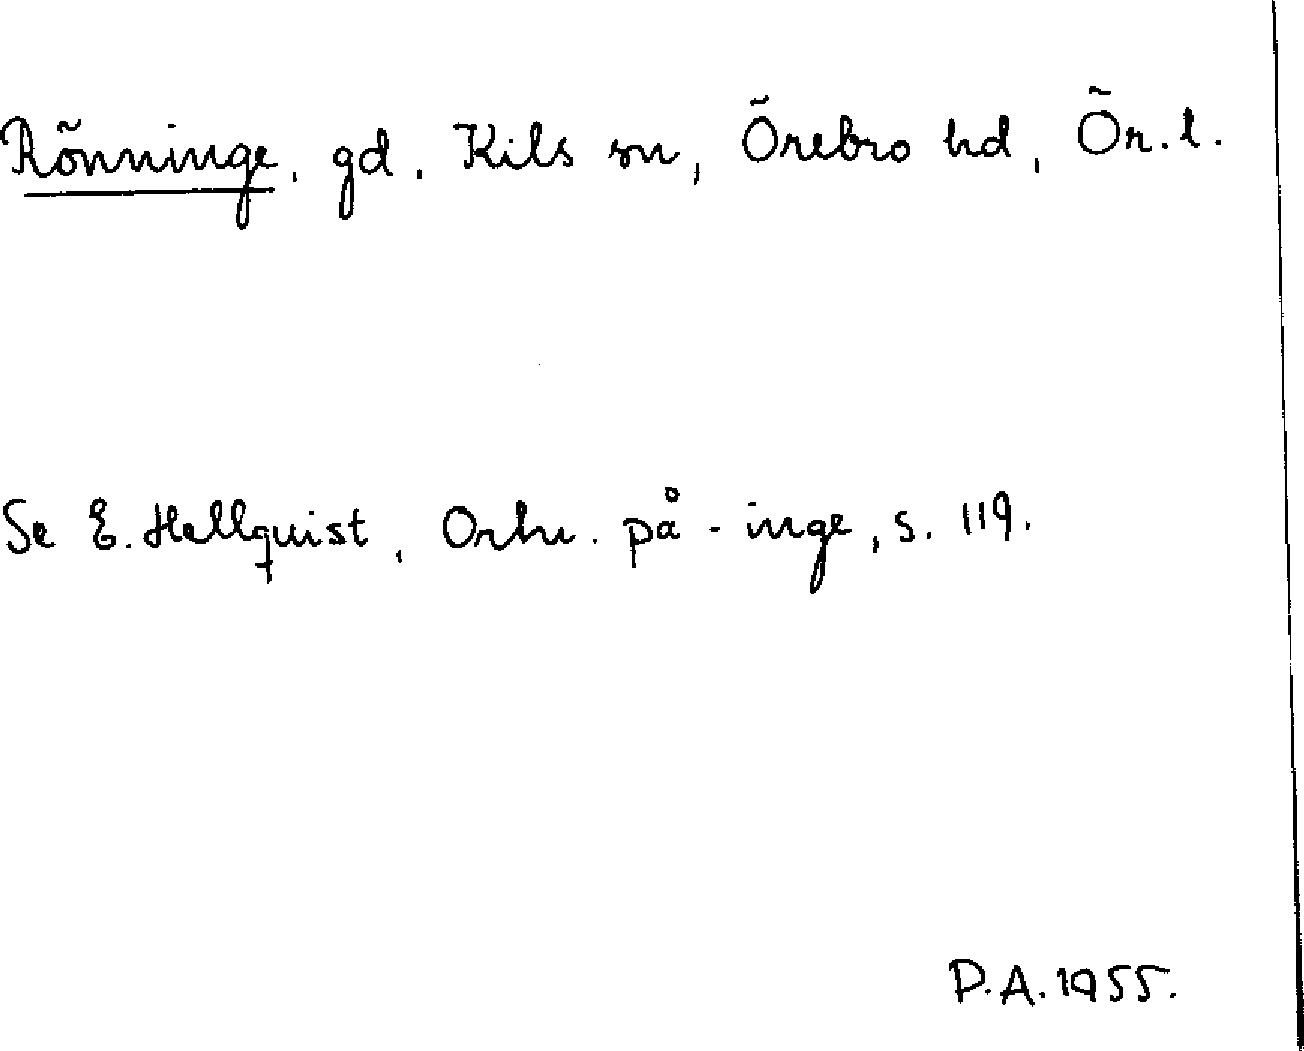 Rönninge, gd, Kils sn, Örebro hd, Ör. l.
Se E. Hellquist, Ortn. på -inge, s. 119.
P.A. 1955.